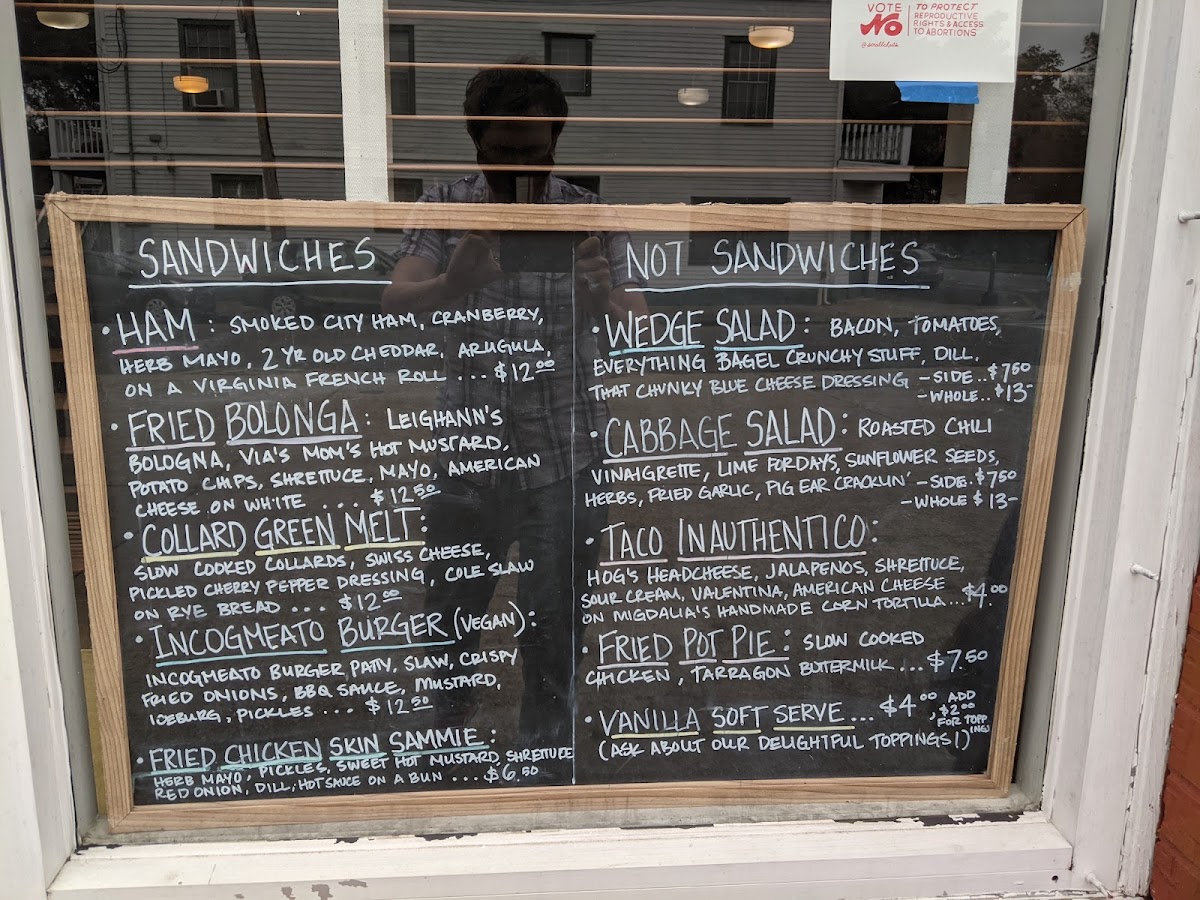 VOTE
NO
TO PROTECT
REPRODUCTIVE
RIGHTS & ACCESS
TO ABORTIONS
SANDWICHES
• HAM : SMOKED CITY HAM, CRANBERRY,
HERB MAYO, 2 YR OLD CHEDDAR, ARUGULA,
ON A VIRGINIA FRENCH ROLL ... $12.00
• FRIED BOLONGA : LEIGHANN'S
BOLOGNA, VIA'S MOM'S HOT MUSTARD,
POTATO CHIPS, SHRETTUCE, MAYO, AMERICAN
CHEESE ON WHITE .... $12.50
• COLLARD GREEN MELT:
SLOW COOKED COLLARDS, SWISS CHEESE,
PICKLED CHERRY PEPPER DRESSING, COLE SLAW
ON RYE BREAD .... $12.00
• INCOGMEATO BURGER (VEGAN):
INCOGMEATO BURGER PATTY, SLAW, CRISPY
FRIED ONIONS, BBQ SAUCE, MUSTARD,
ICEBURG, PICKLES ... $12.50
• FRIED CHICKEN SKIN SAMMIE:
HERB MAYO, PICKLES, SWEET HOT MUSTARD, SHRETTUCE
RED ONION, DILL, HOT SAUCE ON A BUN .... $6.50
NOT SANDWICHES
• WEDGE SALAD: BACON, TOMATOES,
EVERYTHING BAGEL CRUNCHY STUFF, DILL,
THAT CHUNKY BLUE CHEESE DRESSING - SIDE .. $7.50
- WHOLE.. $13-
• CABBAGE SALAD: ROASTED CHILI
VINAIGRETTE, LIME FORDAYS, SUNFLOWER SEEDS,
HERBS, FRIED GARLIC, PIG EAR CRACKLIN' - SIDE. $7.50
- WHOLE $13-
• TACO INAUTHENTICO:
HOG'S HEADCHEESE, JALAPENOS, SHRETTUCE,
SOUR CREAM, VALENTINA, AMERICAN CHEESE
ON MIGDALIA'S HANDMADE CORN TORTILLA... $4.00
• FRIED POT PIE: SLOW COOKED
CHICKEN, TARRAGON BUTTERMILK ... $7.50
• VANILLA SOFT SERVE... $4.00, ADD
$2.00
FOR TOPP
INGS
(ASK ABOUT OUR DELIGHTFUL TOPPINGS!)